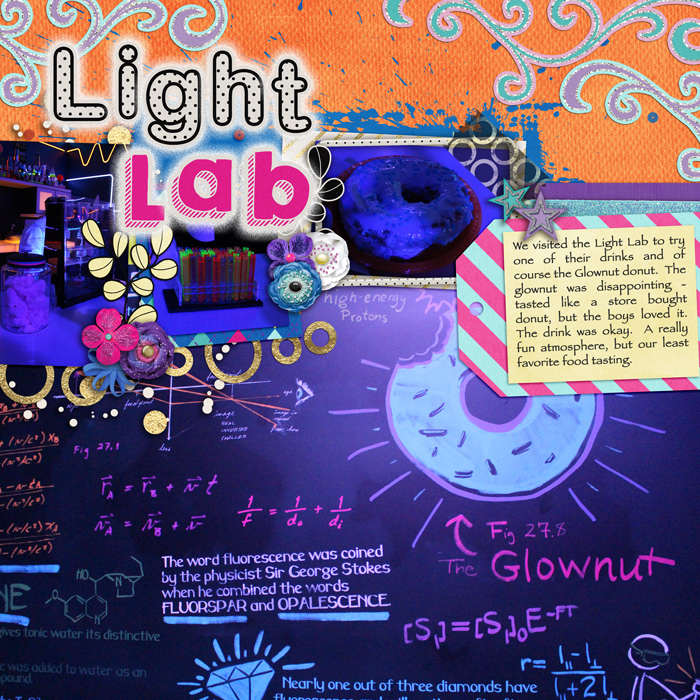 Light
Lab
We visited the Light Lab to try
one of their drinks and of
course the Glownut donut. The
glownut was disappointing -
tasted like a store bought
donut, but the boys loved it.
The drink was okay. A really
fun atmosphere, but our least
favorite food tasting.
high-energy
Protons
image
REAL
INVERTED
SMALLER
lens
Fig 27.1
r⃗_A = r⃗_B + v⃗ t
1/f = 1/d₀ + 1/dᵢ
Fig 27.8
The Glownut
The word fluorescence was coined
by the physicist Sir George Stokes
when he combined the words
FLUORSPAR and OPALESCENCE.
[S₁]=[S₁]₀E^-FT
HO
N
NE
gives tonic water its distinctive
was added to water as an
Nearly one out of three diamonds have